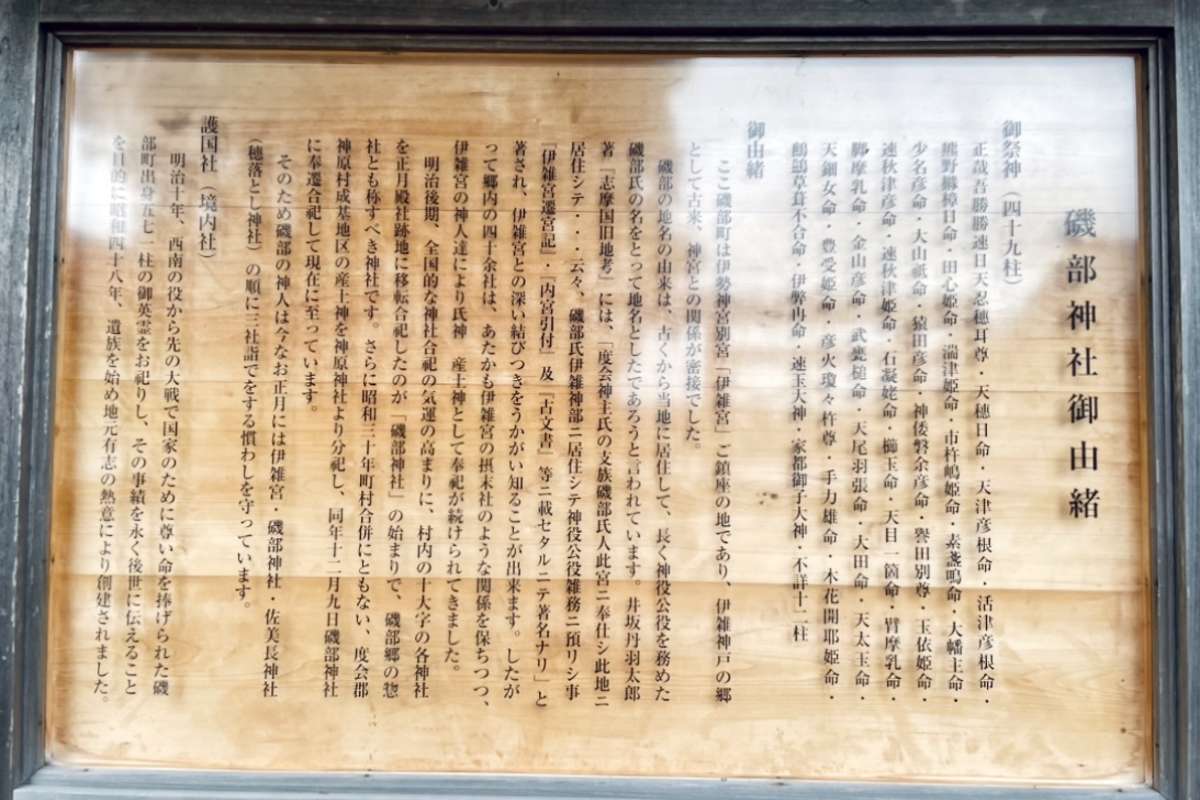 磯部神社御由緒
御祭神（四十九柱）
正哉吾勝勝速日天忍穂耳尊・天穂日命・天津彦根命・活津彦根命・
熊野櫲樟日命・田心姫命・湍津姫命・市杵嶋姫命・素盞鳴命・大幡主命・
少名彦命・大山祇命・猿田彦命・神倭磐余彦命・譽田別尊・玉依姫命・
速秋津彦命・速秋津姫命・石凝姥命・櫛玉命・天目一箇命・臂摩乳命・
脚摩乳命・金山彦命・武甕槌命・天尾羽張命・大田命・天太玉命・
天鈿女命・豊受姫命・彦火瓊々杵尊・手力雄命・木花開耶姫命・
鸕鷀草葺不合命・伊弊冉命・速玉大神・家都御子大神・不詳十二柱
御由緒
ここ磯部町は伊勢神宮別宮「伊雑宮」ご鎮座の地であり、伊雑神戸の郷
として古来、神宮との関係が密接でした。
磯部の地名の由来は、古くから当地に居住して、長く神役公役を務めた
磯部氏の名をとって地名としたであろうと言われています。井坂丹羽太郎
著「志摩国旧地考」には、「度会神主氏の支族磯部氏人此宮ニ奉仕シ此地ニ
居住シテ・・・云々、磯部氏伊雑神部ニ居住シテ神役公役雑務ニ預リシ事
『伊雑宮遷宮記』・『内宮引付』及『古文書』等ニ載セタルニテ著名ナリ」と
著され、伊雑宮との深い結びつきをうかがい知ることが出来ます。したが
って郷内の四十余社は、あたかも伊雑宮の摂末社のような関係を保ちつつ、
伊雑宮の神人達により氏神　産土神として奉祀が続けられてきました。
明治後期、全国的な神社合祀の気運の高まりに、村内の十大字の各神社
を正月殿社跡地に移転合祀したのが「磯部神社」の始まりで、磯部郷の惣
社とも称すべき神社です。さらに昭和三十年町村合併にともない、度会郡
神原村成基地区の産土神を神原神社より分祀し、同年十二月九日磯部神社
に奉遷合祀して現在に至っています。
そのため磯部の神人は今なお正月には伊雑宮・磯部神社・佐美長神社
（穂落とし神社）の順に三社詣でをする慣わしを守っています。
護国社（境内社）
明治十年、西南の役から先の大戦で国家のために尊い命を捧げられた磯
部町出身五七一柱の御英霊をお祀りし、その事績を永く後世に伝えること
を目的に昭和四十八年、遺族を始め地元有志の熱意により創建されました。